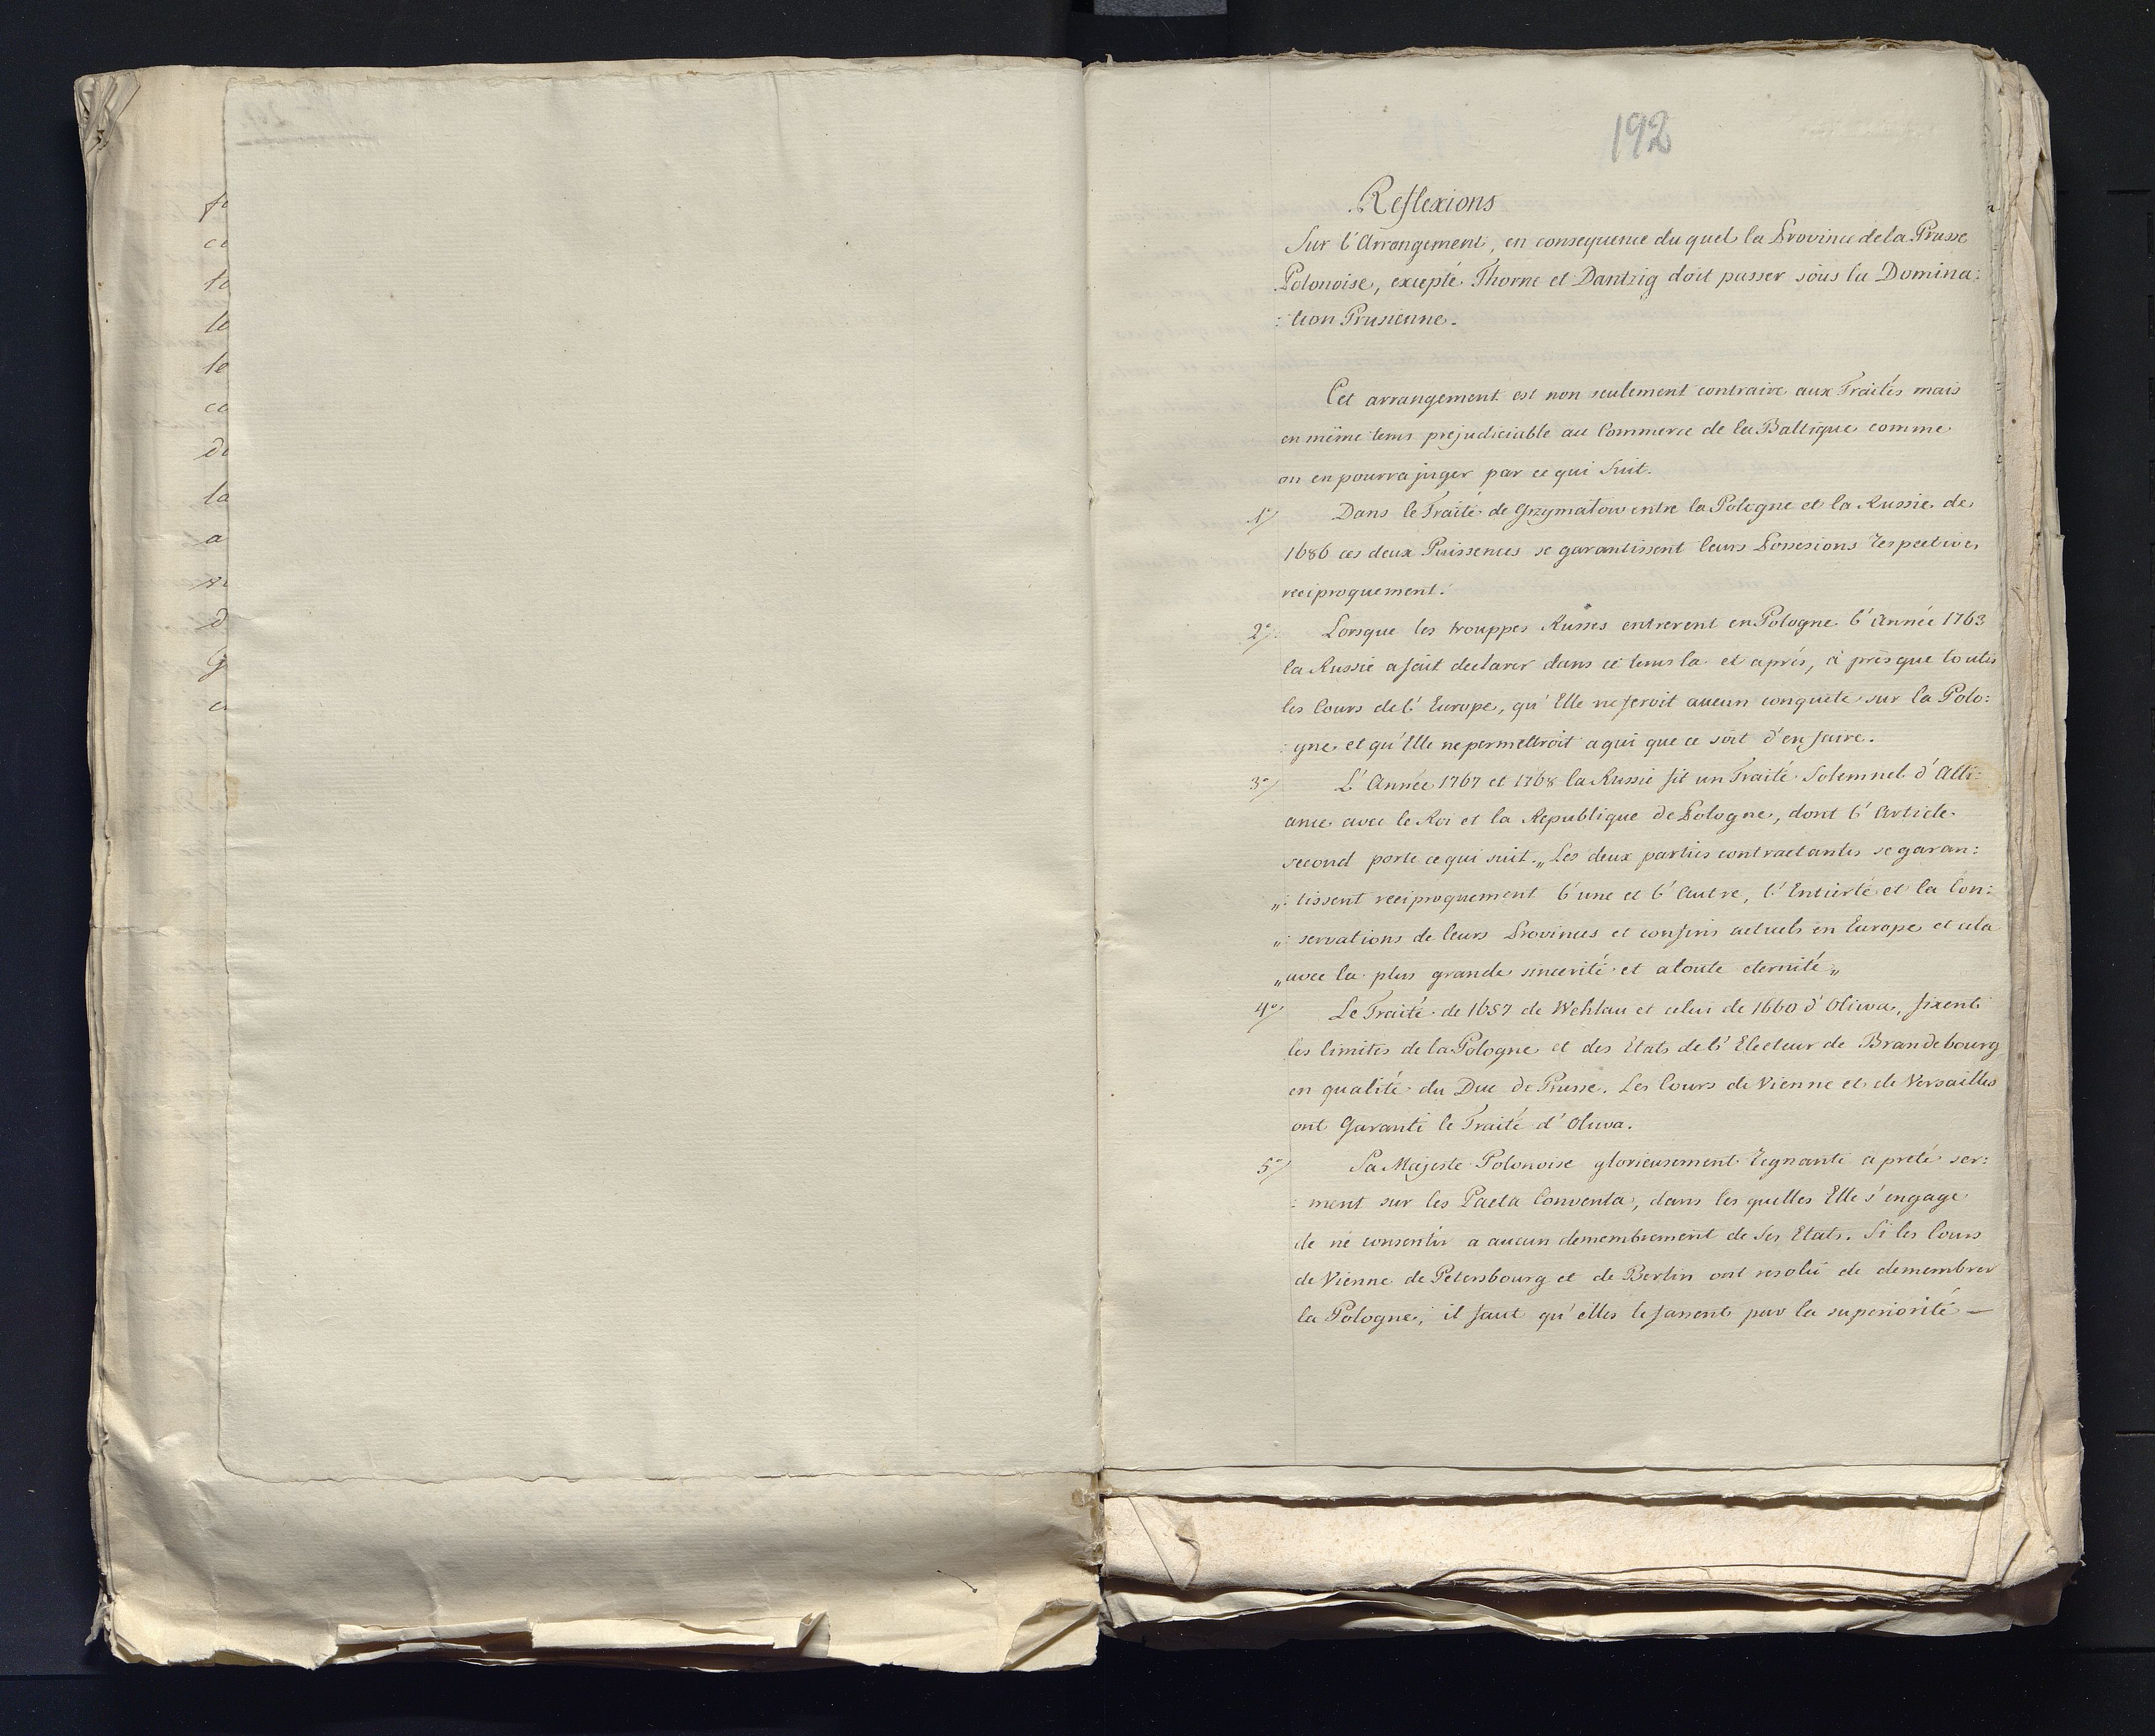 192
Reflexions
Sur l'Arrangement, en consequence du quel la Province de la Prusse
Polonoise, excepté Thorne et Dantzig doit passer sous la Domina:
:tion Prusienne.
Cet arrangement est non seulement contraire aux Traités mais
en même tems prejudiciable au Commerce de la Baltique comme
on en pourra juger par ce qui suit.
1º/ Dans le Traité de Grzymatow entre la Pologne et la Russie de
1686 ces deux Puissences se garantissent leurs Possesions respectives
reciproquement.
2º/: Lorsque les trouppes Russes entrerent en Pologne l'Année 1763
la Russie a fait declarer dans ce tems la et aprés, à presque toutes
les Cours de l'Europe, qu'Elle ne feroit aucun conquete sur la Polo:
:gne et qu'Elle ne permettroit a qui que ce soit d'en faire.
3º/ L'Année 1767 et 1768 la Russie fit un Traité Solemnel d'Alli:
ance avec le Roi et la Republique de Pologne, dont l'Article
second porte ce qui suit. „Les deux parties contractantes se garan:
„: tissent reciproquement l'une et l'Autre, l'Entierté et la Con:
„: servations de leurs Provinces et confins actuels en Europe et cela
„avec la plus grande sincerité et a toute eternité„
4º/ Le Traité de 1657 de Wehlau et celui de 1660 d'Oliwa, fixent
les limites de la Pologne et des Etats de l'Electeur de Brandebourg
en qualité du Duc de Prusse. Les Cours de Vienne et de Versailles
ont Garanti le Traité d'Oliwa.
5º/ Sa Majeste Polonoise glorieusement regnante a preté ser:
: ment sur les Pacta Conventa, dans les quelles Elle s'engage
de ne consentir a aucun demembrement de Ses Etats. Si les Cours
de Vienne de Petersbourg et de Berlin ont resolu de demembrer
la Pologne, il faut qu'elles le fassent par la superiorité —